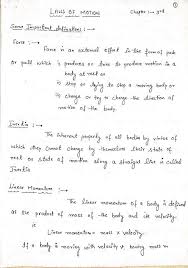 ①
LAWS OF MOTION Chapter :- 3rd
Some Important definations :-
Force :-
Force is an external effort in the form of push
or pull which i) produces or tries to produce motion in a
body at rest or
ii) stop or trying to stop a moving body or
iii) change or try to change the direction of
motion of the body.
Inertia :-
The inherent property of all bodies by virtue of
which they cannot change by themselves their state of
rest or state of motion along a straight line is called
Inertia
Linear Momentum :-
The linear momentum of a body is defined
as the product of mass of the body and its velocity.
i.e
Linear momentum = mass x velocity.
If a body is moving with velocity v, having mass m